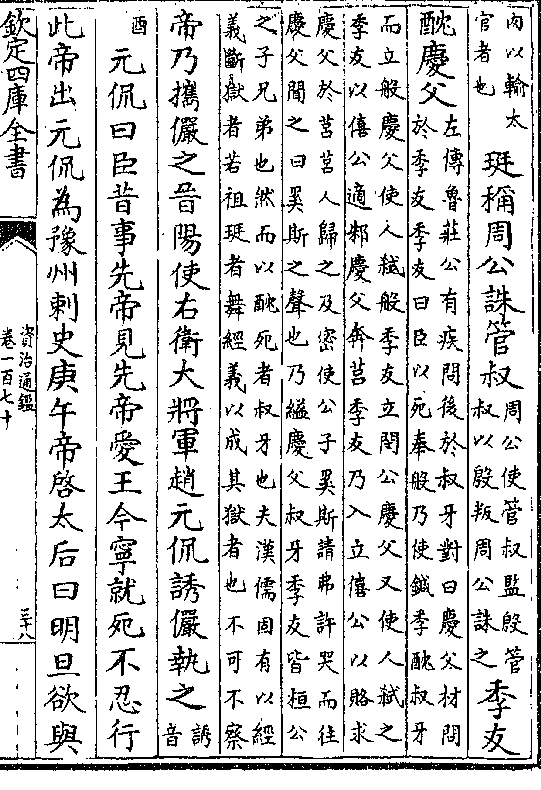 内以輸太
官者也
珽稱周公誅管叔
周公使管叔監殷管
叔以殷叛周公誅之
季友
酖慶父
左傳魯莊公有疾問後於叔牙對曰慶父材問
於季友季友曰臣以死奉般乃使鍼季酖叔牙
而立般慶父使人弑般季友立閔公慶父又使人弑之
季友以僖公適邾慶父奔莒季友乃入立僖公以賂求
慶父於莒莒人歸之及密使公子奚斯請弗許哭而往
慶父聞之曰奚斯之聲也乃縊慶父叔牙季友皆桓公
之子兄弟也然而以酖死者叔牙也夫漢儒固有以經
義斷獄者若祖珽者舞經義以成其獄者也不可不察
帝乃攜儼之晉陽使右衛大將軍趙元侃誘儼執之
誘
音
酉
元侃曰臣昔事先帝見先帝愛王今寧就死不忍行
此帝出元侃為豫州刺史庚午帝啓太后曰明旦欲與
欽定四庫全書
資治通鑑
卷一百七十
三十八